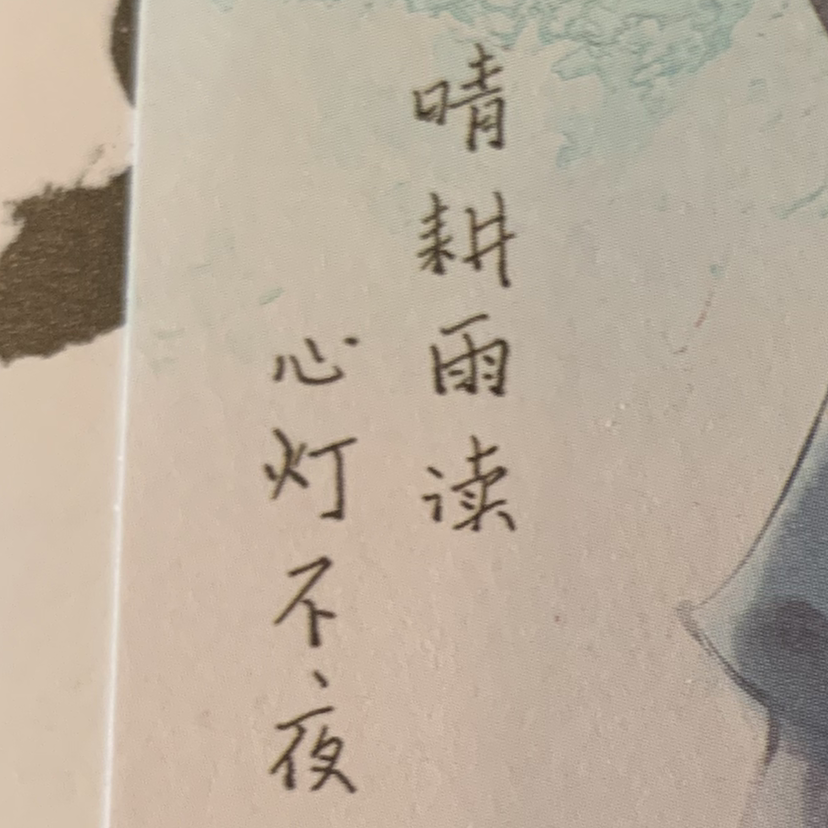 晴耕雨读
心灯不夜